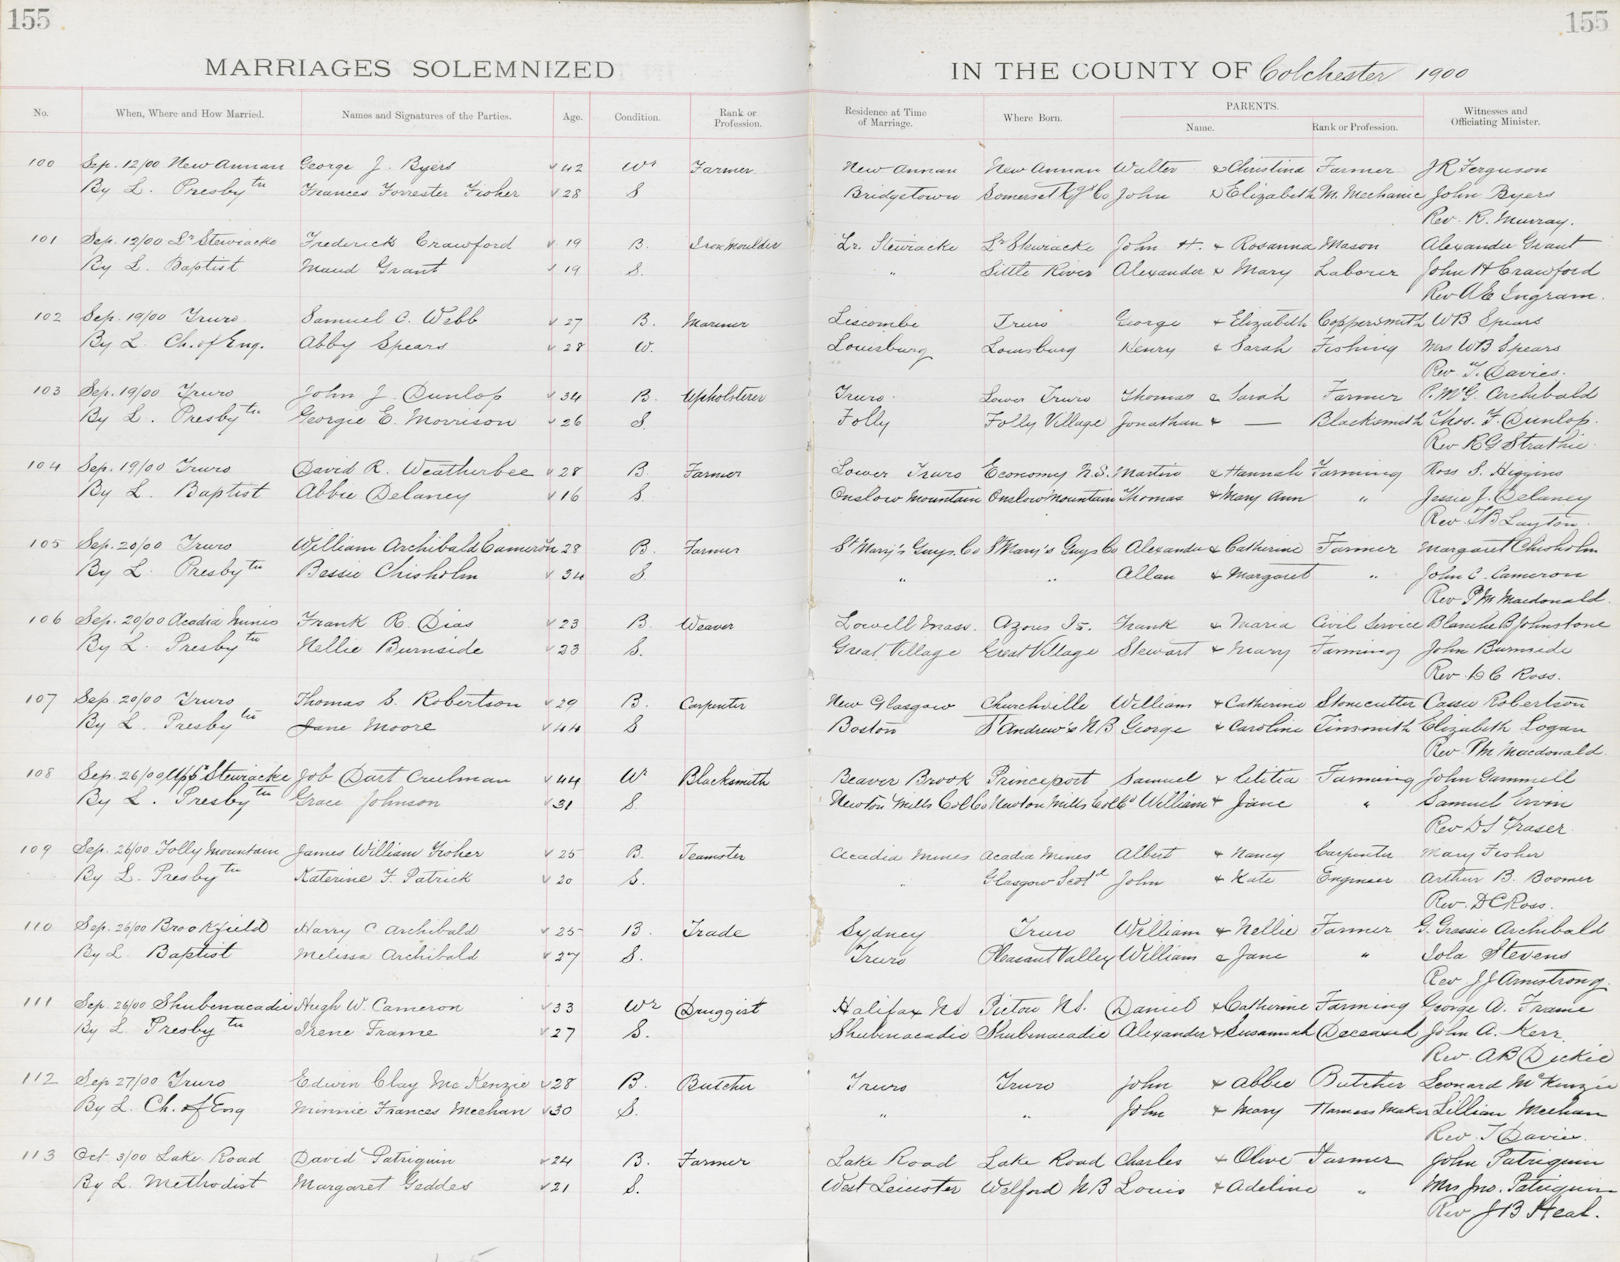 155 155
MARRIAGES SOLEMNIZED IN THE COUNTY OF Colchester 1900
No. When, Where and How Married. Names and Signatures of the Parties. Age. Condition. Rank or Profession. Residence at Time of Marriage. Where Born. PARENTS. Name. Rank or Profession. Witnesses and Officiating Minister.
100 Sep. 12/00 New Annan George J. Byers 42 Wr Farmer New Annan New Annan Walter & Christina Farmer J R Ferguson
By L. Presbytn Frances Forrester Fisher 28 S Bridgetown Somerset Kgs Co John & Elizabeth M. Mechanic John Byers
Rev. R. Murray.
101 Sep. 12/00 Lr Stewiacke Frederick Crawford 19 B. Iron Moulder Lr. Stewiacke Lr Stewiacke John H. & Rosanna Mason Alexander Grant
By L. Baptist Maud Grant 19 S. " Little River Alexander & Mary Laborer John H Crawford
Rev A E Ingram.
102 Sep. 19/00 Truro Samuel C. Webb 27 B. Mariner Liscombe Truro George & Elizabeth Coppersmith W B Spears
By L. Ch. of Eng. Abby Spears 28 W. Louisburg Louisburg Henry & Sarah Fishing Mrs W B Spears
Rev T. Davies.
103 Sep. 19/00 Truro John J. Dunlop 34 B. Upholsterer Truro Lower Truro Thomas & Sarah Farmer P. McG. Archibald
By L. Presbytn Georgie E. Morrison 26 S. Folly Folly Village Jonathan & — Blacksmith Thos. F. Dunlop.
Rev R G Strathie.
104 Sep. 19/00 Truro David R. Weatherbee 28 B. Farmer Lower Truro Economy N.S. Martin & Hannah Farming Ross S. Higgins
By L. Baptist Abbie Delaney 16 S. Onslow Mountain Onslow Mountain Thomas & Mary Ann " Jessie J. Delaney
Rev. T B Layton.
105 Sep. 20/00 Truro William Archibald Cameron 28 B. Farmer St Mary's Guys. Co St Mary's Guys Co Alexander & Catherine Farmer Margaret Chisholm
By L. Presbytn Bessie Chisholm 34 S. " " Allan & Margaret " John C. Cameron
Rev P M Macdonald.
106 Sep. 20/00 Acadia Mines Frank R. Dias 23 B. Weaver Lowell Mass. Azous Is. Frank & Maria Civil Service Blanche B Johnstone
By L. Presbytn Nellie Burnside 23 S. Great Village Great Village Stewart & Mary Farming John Burnside
Rev. D C Ross.
107 Sep. 20/00 Truro Thomas S. Robertson 29 B. Carpenter New Glasgow Churchville William & Catherine Stonecutter Cassie Robertson
By L. Presbytn Jane Moore 44 S Boston St Andrew's N B George & Caroline Tinsmith Elizabeth Logan
Rev P M Macdonald.
108 Sep. 26/00 Uppr Stewiacke Job Dart Creelman 44 Wr Blacksmith Beaver Brook Princeport Samuel & Letitia Farming John Gammell
By L. Presbytn Grace Johnson 31 S. Newton Mills Col Co Newton Mills Col Co William & Jane " Samuel Ervin
Rev D S Fraser.
109 Sep. 26/00 Folly Mountain James William Fisher 25 B. Teamster Acadia Mines Acadia Mines Albert & Nancy Carpenter Mary Fisher
By L. Presbytn Katerine F. Patrick 20 S. " Glasgow Scotd John & Kate Engineer Arthur B. Boomer
Rev. D C Ross.
110 Sep. 26/00 Brookfield Harry C Archibald 25 B. Trade Sydney Truro William & Nellie Farmer G. Archibald
By L Baptist Melissa Archibald 27 S. Truro Pleasant Valley William & Jane " Iola Stevens
Rev J J Armstrong.
111 Sep. 26/00 Shubenacadie Hugh W. Cameron 33 Wr Druggist Halifax N S Pictou N S. Daniel & Catherine Farming George A. Frame
By L. Presbytn Irene Frame 27 S. Shubenacadie Shubenacadie Alexander & Susannah Deceased John A. Kerr
Rev. A B Dickie
112 Sep 27/00 Truro Edwin Clay McKenzie 28 B. Butcher Truro Truro John & Abbie Butcher Leonard McKenzie
By L. Ch. of Eng Minnie Frances Meehan 30 S. " " John & Mary Harness Maker Lillian Meehan
Rev. T Davies.
113 Oct. 3/00 Lake Road David Patriquin 24 B. Farmer Lake Road Lake Road Charles & Olive Farmer John Patriquin
By L. Methodist Margaret Geddes 21 S. West Leicester Welford N B Louis & Adeline " Mrs Jno. Patriquin
Rev J B Heal.